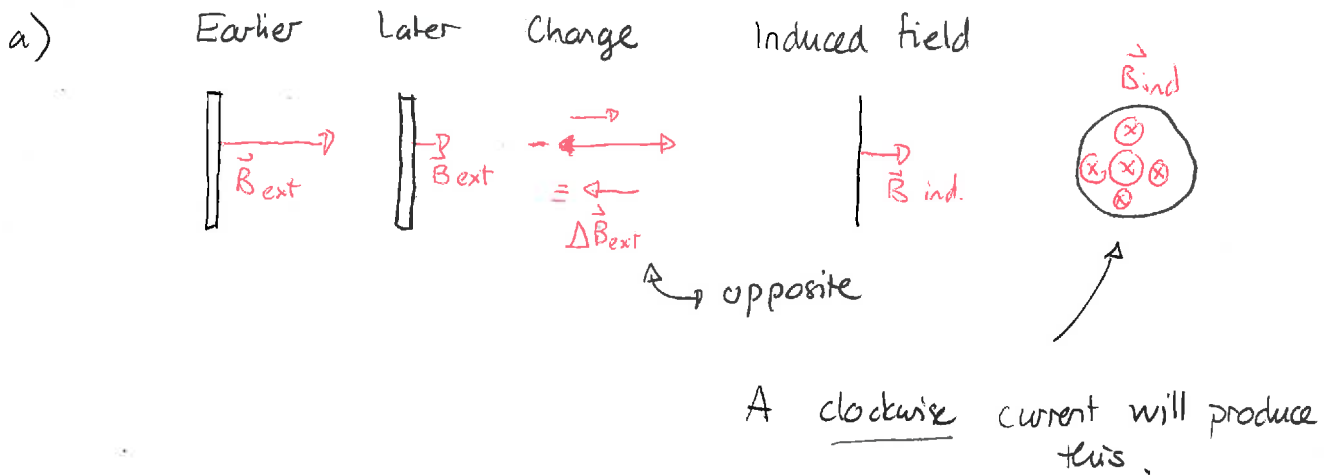 a) Earlier Later Change Induced field
B⃗ind
ⓧ
B⃗ext B⃗ext - ⓧ ⓧ ⓧ
= B⃗ ind. ⓧ
ΔB⃗ext
opposite
A clockwise current will produce
this.